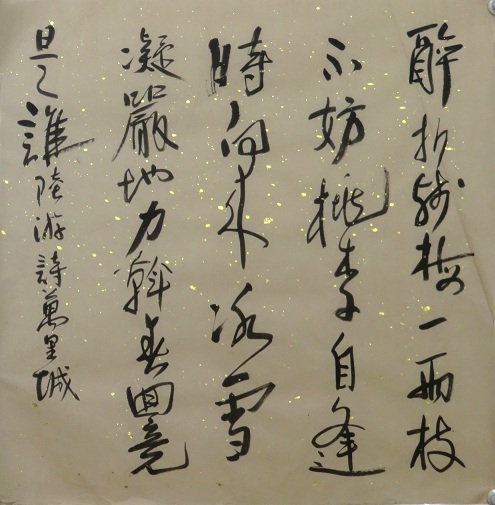 醉折殘梅一兩枝
不妨桃李自逢
時向來冰雪
凝嚴地力斡春回竟
是誰陸游詩萬里城